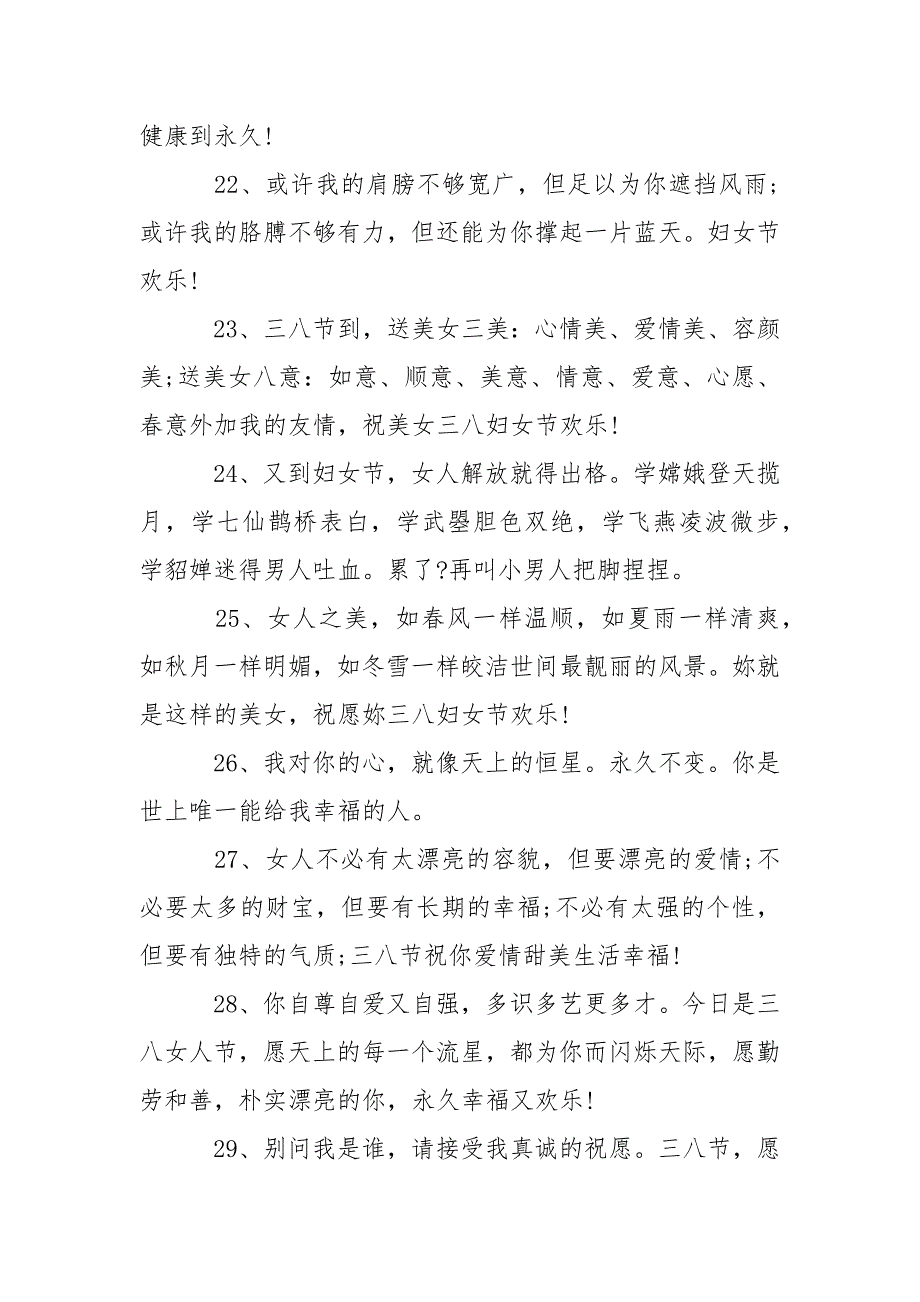 健康到永久!
22、或许我的肩膀不够宽广，但足以为你遮挡风雨;
或许我的胳膊不够有力，但还能为你撑起一片蓝天。妇女节
欢乐!
23、三八节到，送美女三美：心情美、爱情美、容颜
美;送美女八意：如意、顺意、美意、情意、爱意、心愿、
春意外加我的友情，祝美女三八妇女节欢乐!
24、又到妇女节，女人解放就得出格。学嫦娥登天揽
月，学七仙鹊桥表白，学武曌胆色双绝，学飞燕凌波微步，
学貂婵迷得男人吐血。累了?再叫小男人把脚捏捏。
25、女人之美，如春风一样温顺，如夏雨一样清爽，
如秋月一样明媚，如冬雪一样皎洁世间最靓丽的风景。妳就
是这样的美女，祝愿妳三八妇女节欢乐!
26、我对你的心，就像天上的恒星。永久不变。你是
世上唯一能给我幸福的人。
27、女人不必有太漂亮的容貌，但要漂亮的爱情;不
必要太多的财宝，但要有长期的幸福;不必有太强的个性，
但要有独特的气质;三八节祝你爱情甜美生活幸福!
28、你自尊自爱又自强，多识多艺更多才。今日是三
八女人节，愿天上的每一个流星，都为你而闪烁天际，愿勤
劳和善，朴实漂亮的你，永久幸福又欢乐!
29、别问我是谁，请接受我真诚的祝愿。三八节，愿